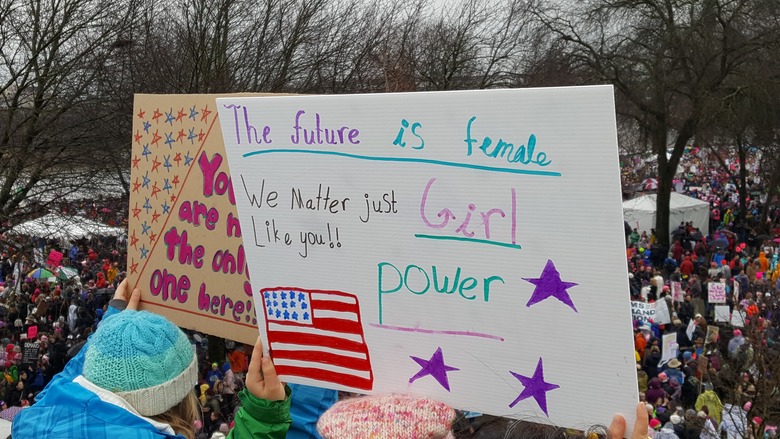 The future is female
We Matter just
Like you!!
Girl
power
You
are n
the onl
one here!!